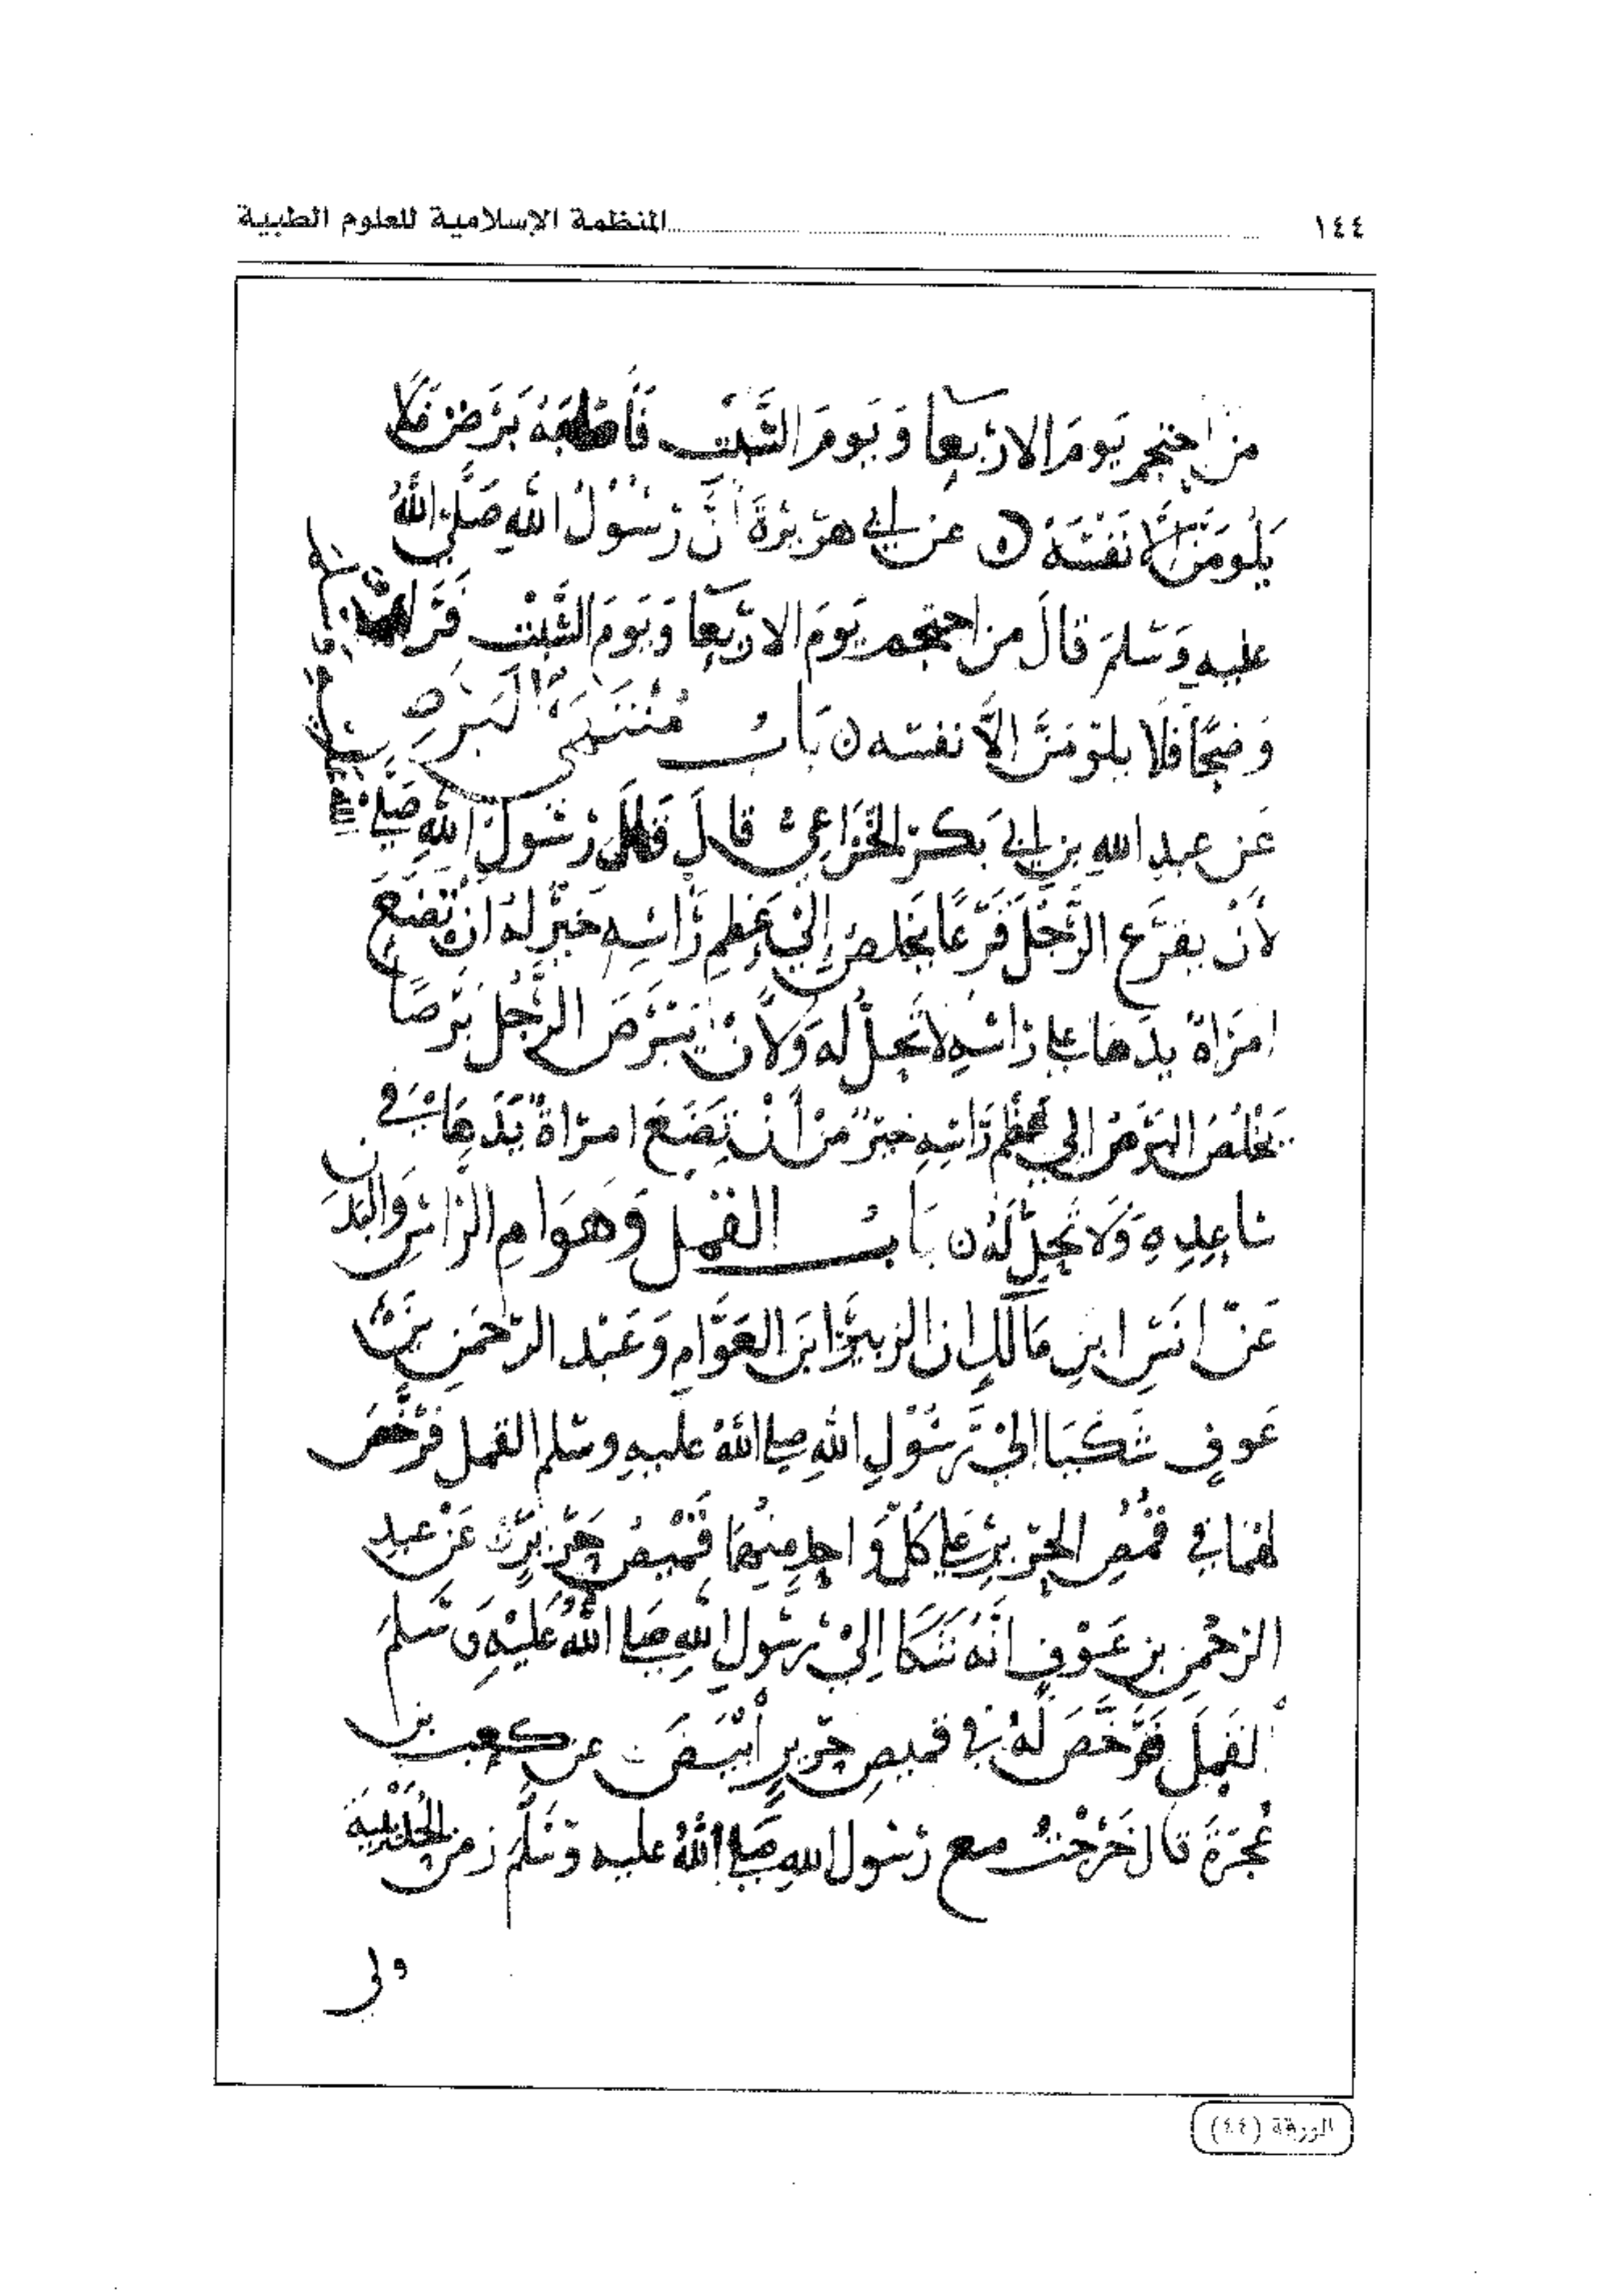 ١٤٤ المنظمة الإسلامية للعلوم الطبية
من احتجم يَومَ الاربعآ وَيَومَ السَّبت فَأصابه بَرَص فلا
يَلُومَنَّ الا نَفْسَهُ ن عن ابي هرَيرَةَ أنَّ رَسُوْلُ اللهِ صَلَّى اللهُ
عليهِ وَسَلمَ قالَ من احتجم يَومَ الاربعآ وَيَومَ السَّبت فرا
وَضحًا فلا يلوَمَنَّ الاَّ نفسَه ن بَابُ البَرَصِ
عَن عبد اللهِ بن ابي بَكر الخُزَاعي قالَ قال رَسُولُ اللهِ صَلى
لأَنْ يقرَع الرَّجُل قَرعًا يَخلص إلىَ عَظمِ رَاسِه خَيْرٌ لهُ ان تضَعَ
امرَاة يدَها على رَاسِهِ لا تحلُّ له وَلأن يَبرَصَ الرَّجُل بَرصًا
يَخلُصَ البَرَصُ الي عظم رَاسِهِ خيرٌ من أنْ تَضَعَ امرَاةٌ يَدَها في
سَاعِدِهِ وَلاَ تَحِلُّ لَهُ ن بَابُ القمل وَهَوَامِ الرَّاسِ وَالبَدَن
عَنْ انَسِ ابنِ مَالك ان الزبيرَ ابنَ العَوَّامِ وَعَبْد الرَّحمَنِ بن
عَوفٍ شَكَيَا اليَ رَسُوْلِ اللهِ صلى اللهُ عليهِ وسَلم القمل فرَخَّصَ
لهُمَا في قمُصِ الحَرِيرِ على كل وَاحِدٍ مِنهُمَا قمَيصُ حَرِيرٍ عَنْ عبدِ
الرَّحمنِ بن عَوْفٍ انَّهُ شَكَا إلىَ رَسُولِ اللهِ صلى اللهُ عَلَيْهِ وَسَلمَ
القمَلَ فَرَخَّصَ لَهُ في قميصِ حَرِيرٍ أَبْيَضَ عن كعب بن
عُجرَةَ قالَ خَرَجْتُ مع رَسُول اللهِ صلى اللهُ عليه وَسَلَّمَ زمن الحُدَيْبِيَةِ
ولى
الورقة (٤٤)